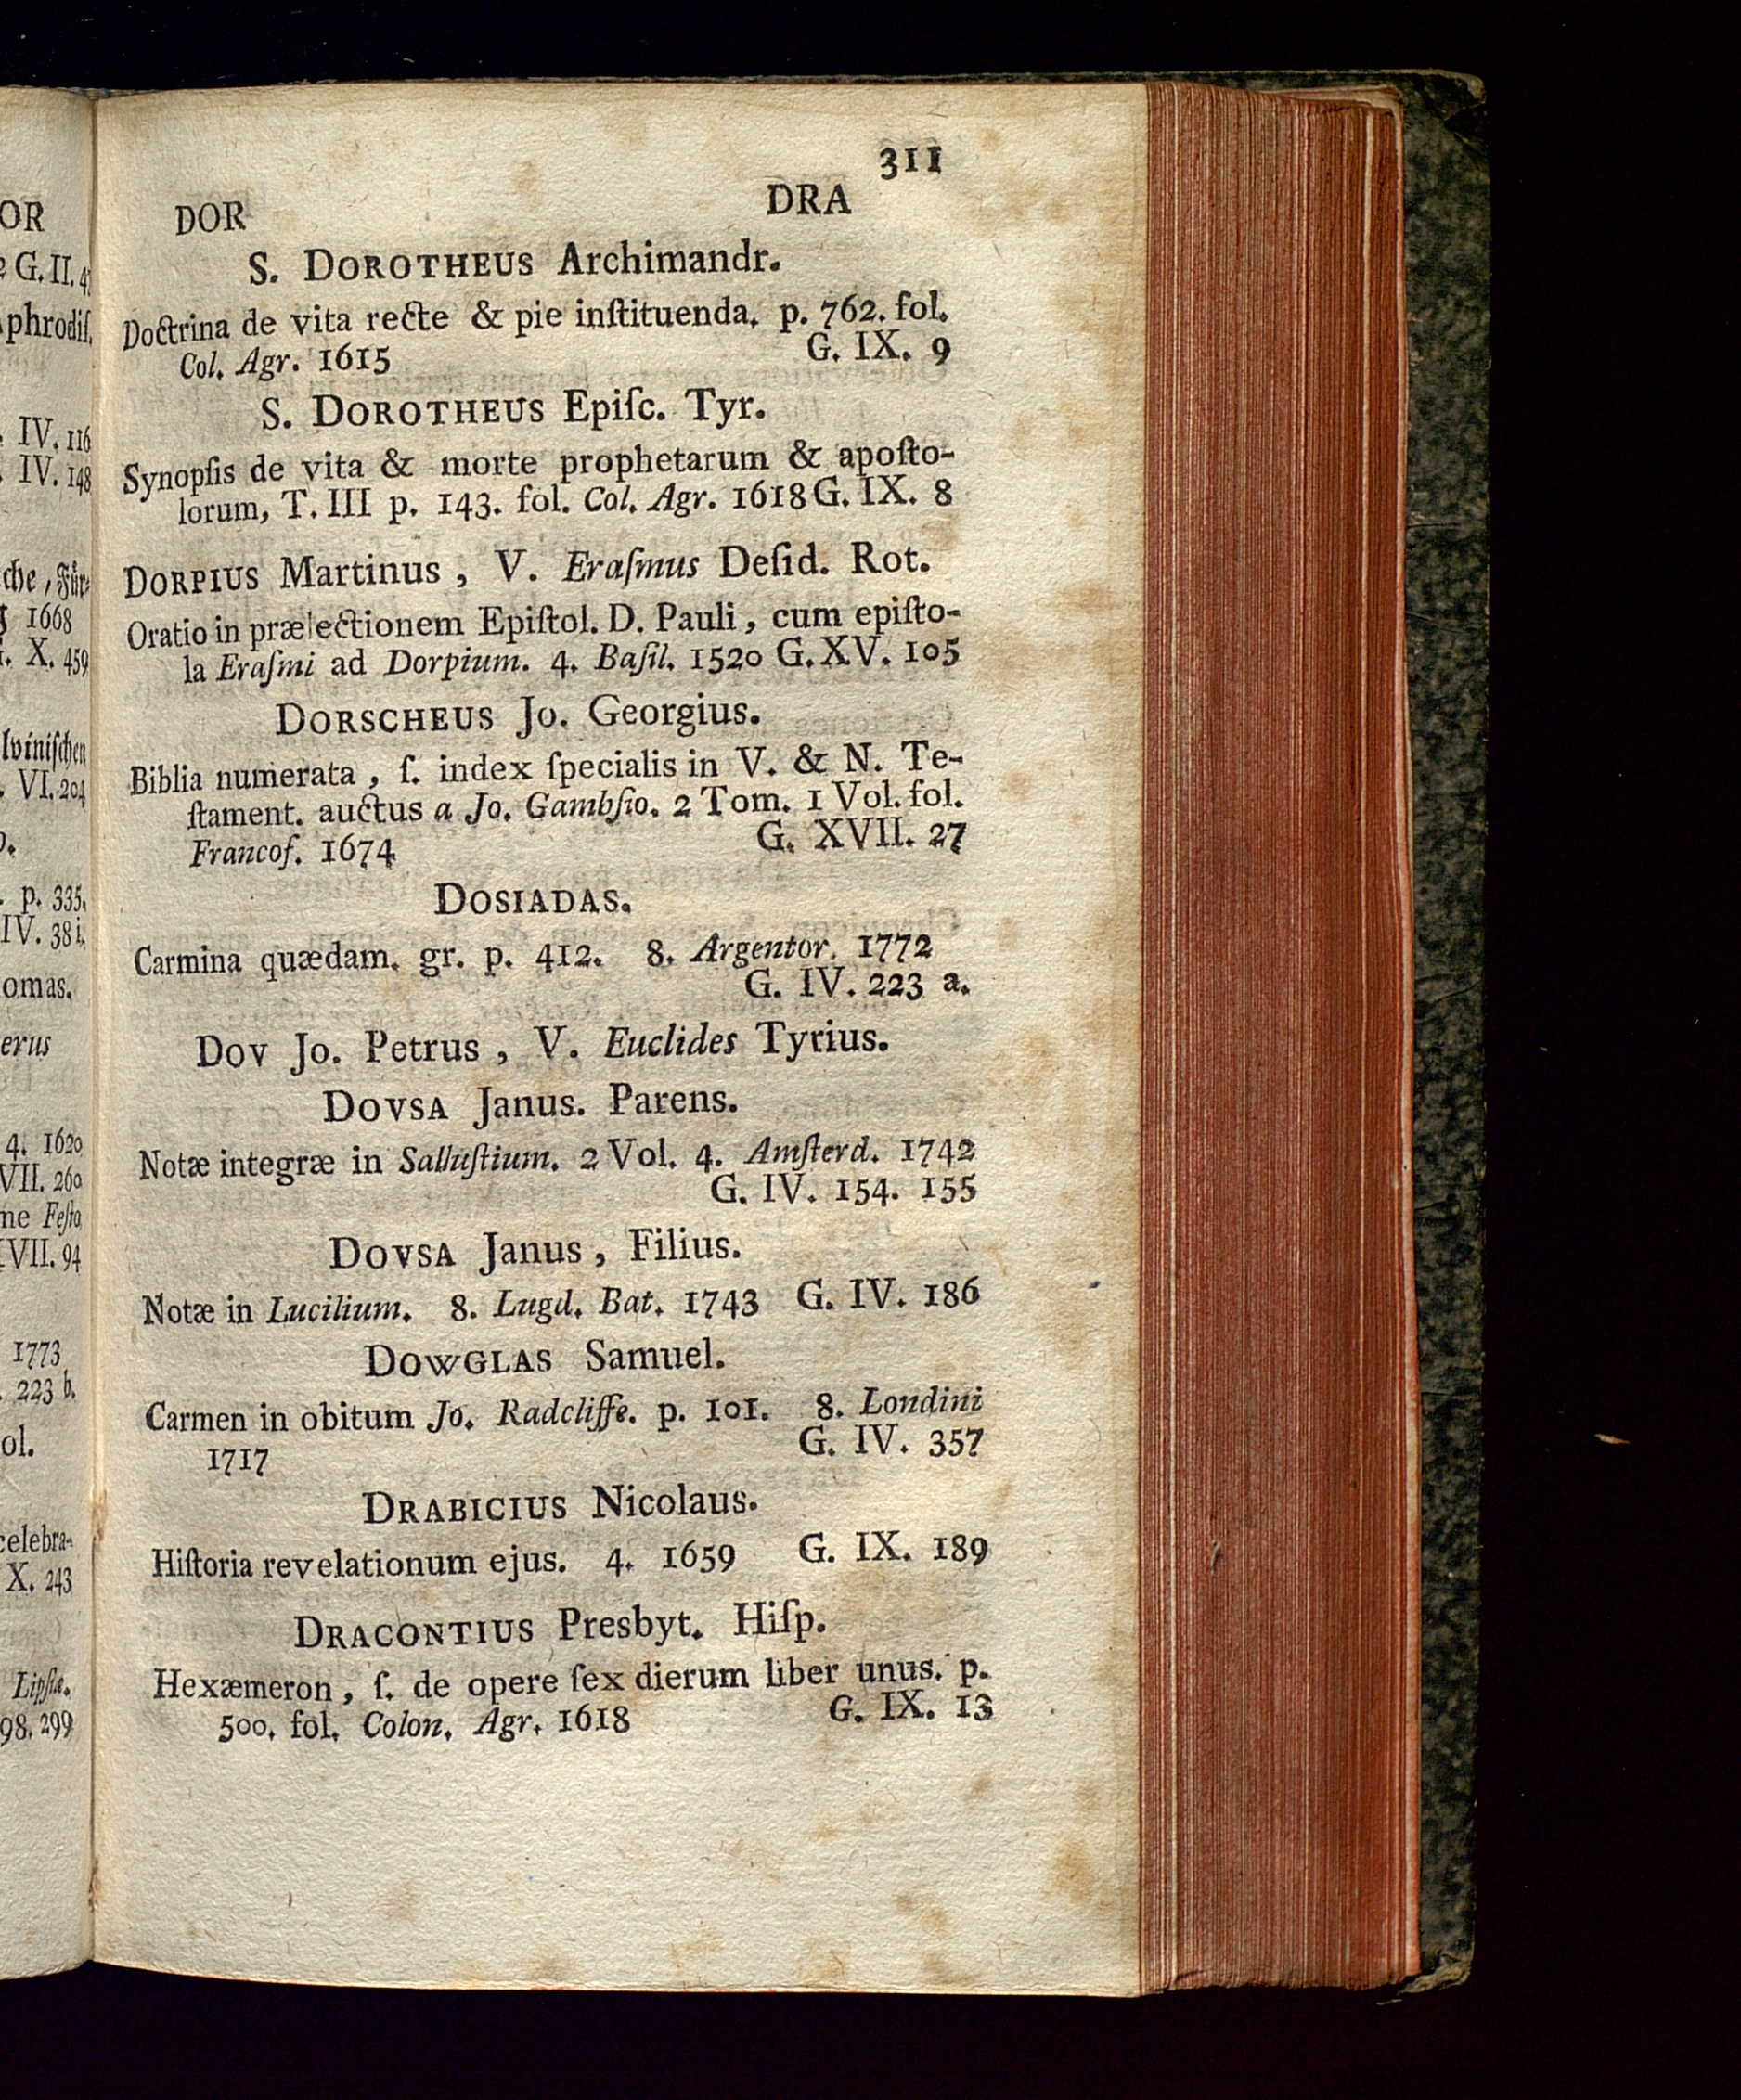 OR
G. II.
phrodiſ.
IV. 116
IV. 148
che, Für⸗
1668
X. 459
lviniſchen
VI. 204
p. 335.
IV. 38 i.
omas.
erus
4. 1620
VII. 260
me Feſto
VII. 94
1773
223 b.
ol.
celebra-
X. 243
Lipſiæ.
98. 299
311
DOR DRA
S. DOROTHEUS Archimandr.
Doctrina de vita recte & pie inſtituenda. p. 762. fol.
Col. Agr. 1615 G. IX. 9
S. DOROTHEUS Epiſc. Tyr.
Synopſis de vita & morte prophetarum & apoſto-
lorum, T. III p. 143. fol. Col. Agr. 1618 G. IX. 8
DORPIUS Martinus, V. Eraſmus Deſid. Rot.
Oratio in prælectionem Epiſtol. D. Pauli, cum epiſto-
la Eraſmi ad Dorpium. 4. Baſil. 1520 G. XV. 105
DORSCHEUS Jo. Georgius.
Biblia numerata, ſ. index ſpecialis in V. & N. Te-
ſtament. auctus a Jo. Gambſio. 2 Tom. 1 Vol. fol.
Francof. 1674 G. XVII. 27
DOSIADAS.
Carmina quædam. gr. p. 412. 8. Argentor. 1772
G. IV. 223 a.
DOV Jo. Petrus, V. Euclides Tyrius.
DOVSA Janus. Parens.
Notæ integræ in Salluſtium. 2 Vol. 4. Amſterd. 1742
G. IV. 154. 155
DOVSA Janus, Filius.
Notæ in Lucilium. 8. Lugd. Bat. 1743 G. IV. 186
DOWGLAS Samuel.
Carmen in obitum Jo. Radcliffe. p. 101. 8. Londini
1717 G. IV. 357
DRABICIUS Nicolaus.
Hiſtoria revelationum ejus. 4. 1659 G. IX. 189
DRACONTIUS Presbyt. Hiſp.
Hexæmeron, ſ. de opere ſex dierum liber unus. p.
500. fol. Colon. Agr. 1618 G. IX. 13